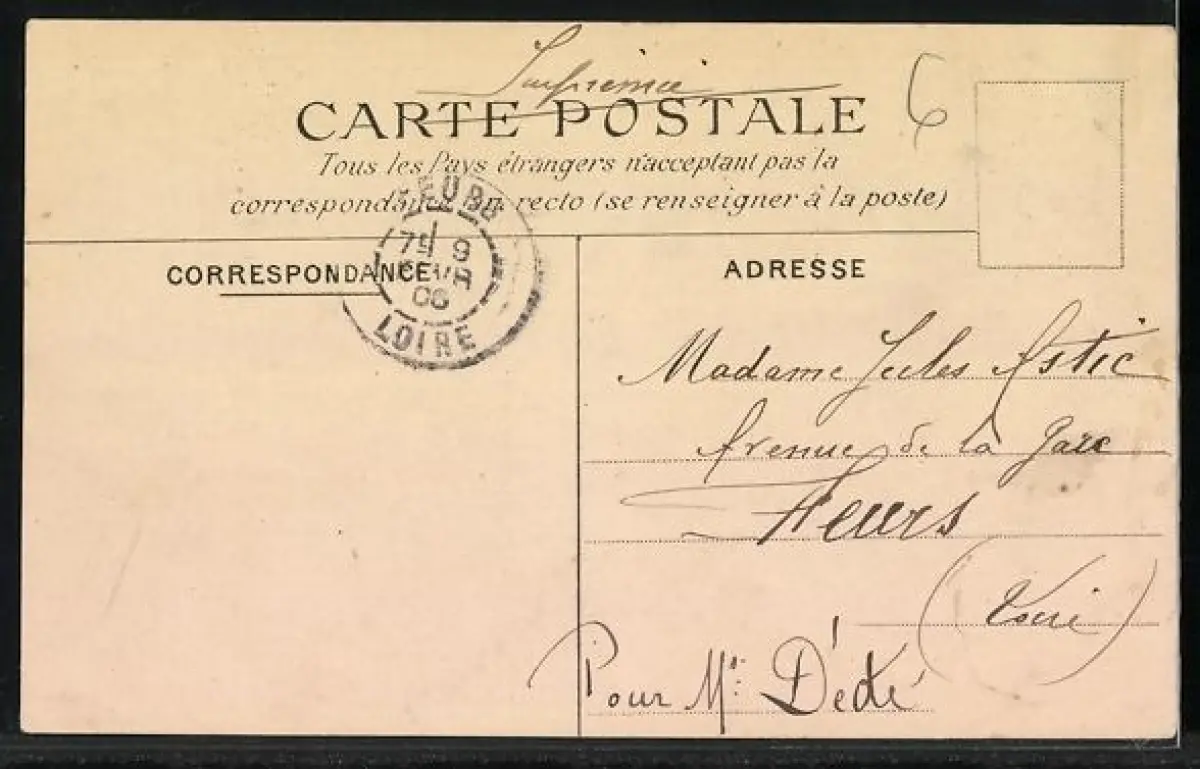 Imprimé
6
CARTE POSTALE
Tous les Pays étrangers n'acceptant pas la
correspondance au recto (se renseigner à la poste)
CORRESPONDANCE
ADRESSE
FEURS
9
06
LOIRE
Madame Jules Astic
Avenue de la Gare
Feurs
(Loire)
Pour Mr: Dédé